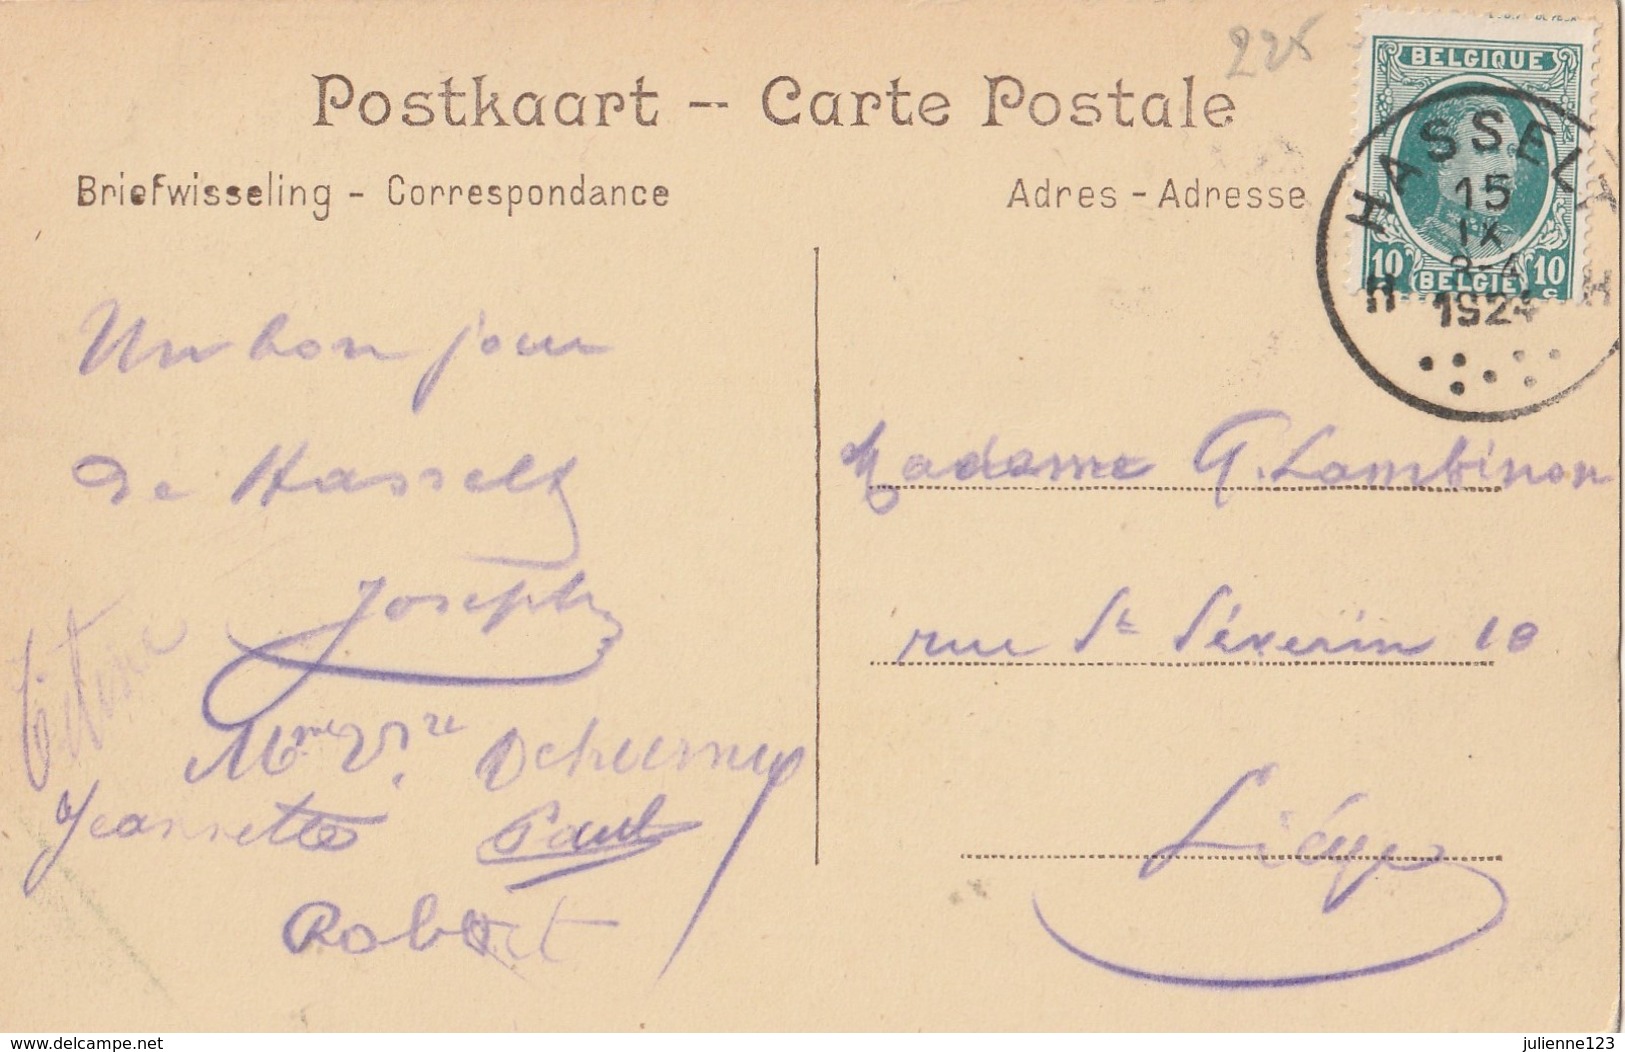 225
BELGIQUE
Postkaart -- Carte Postale
HASSELT
15
IX
1924
H H
10 BELGIË 10
c
Briefwisseling - Correspondance
Adres - Adresse
Un bon jour
de Hasselt
Joseph
Mme Vve
Jeannette Paul
Robert
Madame G. Lambinon
rue St Séverin 10
Liége
www.delcampe.net
julienne123